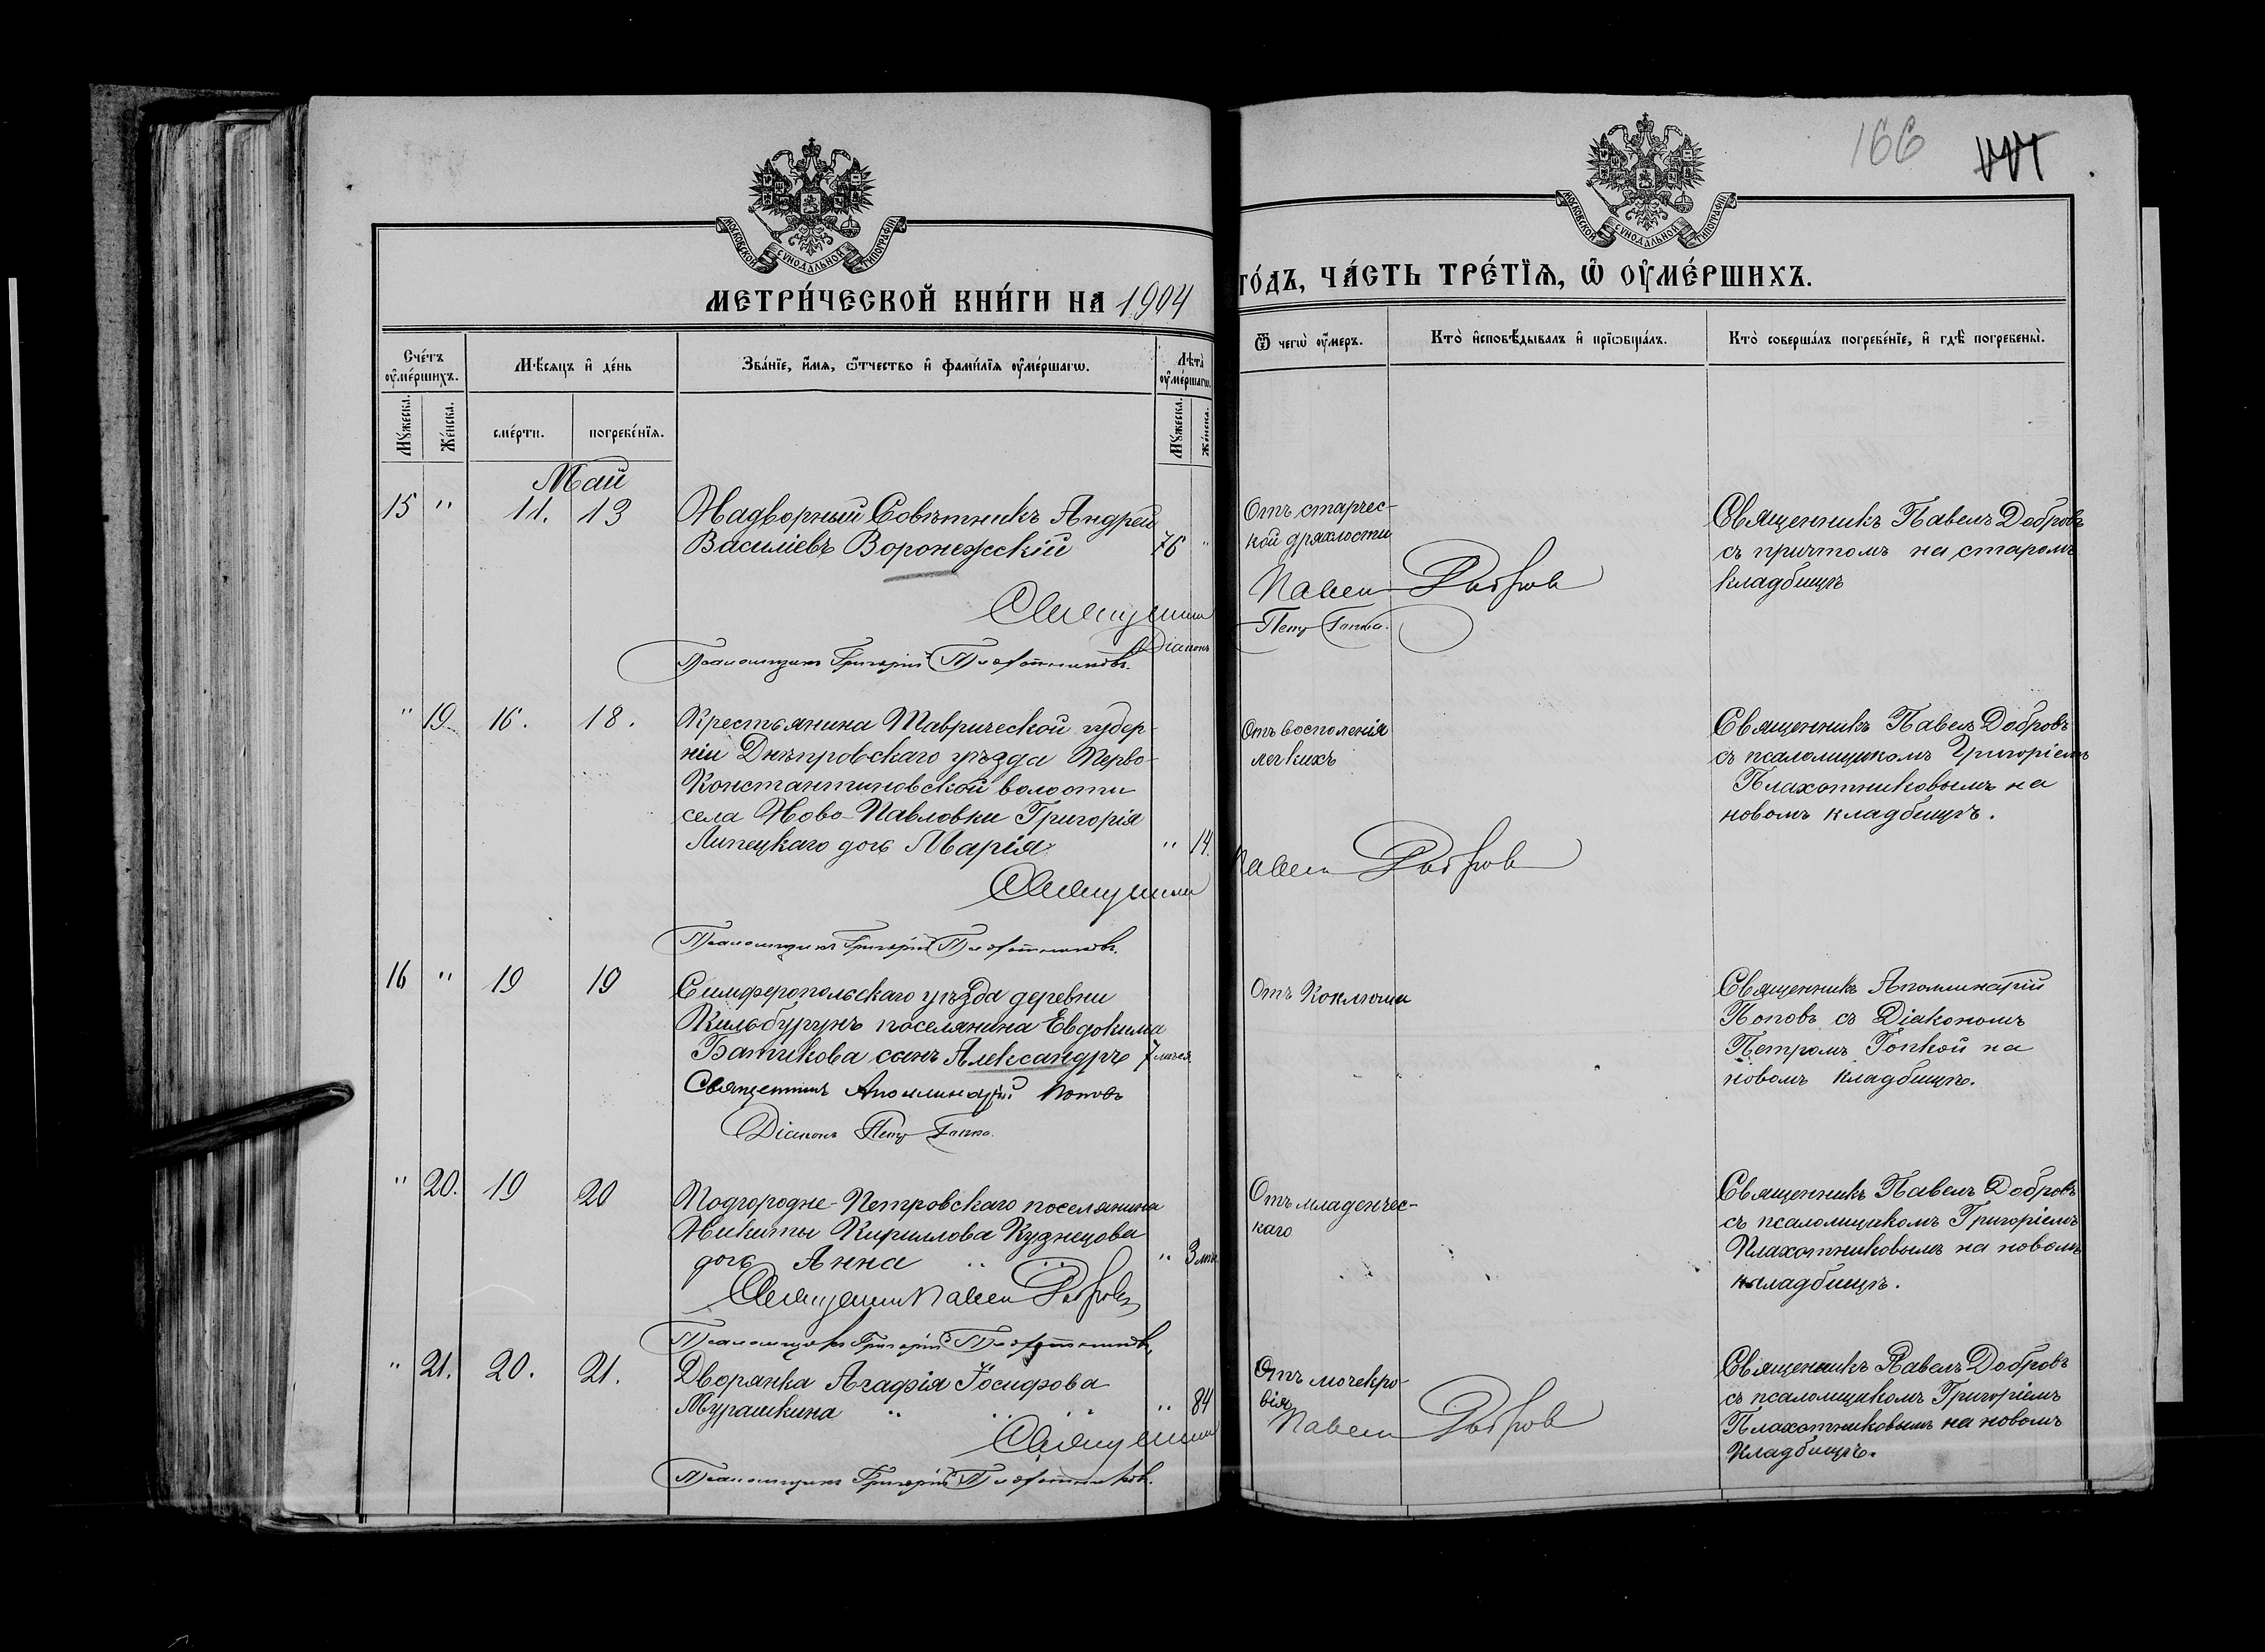 166
МОСКОВСКОЙ СУНОДАЛЬНОЙ ТИПОГРАФІИ.
МОСКОВСКОЙ СУНОДАЛЬНОЙ ТИПОГРАФІИ.
МЕТРИ́ЧЕСКОЙ КНИ́ГИ НА 1904
ГО́ДЪ, ЧА́СТЬ ТРЕ́ТЇѦ, Ѡ҆ ОУ҆МЕ́РШИХЪ.
Сче́тъ оу҆ме́ршихъ.
Мѣ́сяцъ и҆ де́нь
Зва́нїе, и҆́мѧ, ѻ҆́тчество и҆ фами́лїѧ оу҆ме́ршагѡ.
Лѣ́та оу҆ме́ршагѡ.
Ѿ чегѡ̀ оу҆́меръ.
Кто̀ и҆сповѣ́дывалъ и҆ прїѡбща́лъ.
Кто̀ соверша́лъ погребе́нїе, и҆ гдѣ̀ погребены̀.
Мꙋ́жеска.
Же́нска.
сме́рти.
погребе́нїѧ.
Мꙋ́жеска.
Же́нска.
Май
15 " 11. 13
Надворный Совѣтникъ Андрей
Василіевъ Воронежскій 76 "
Священник
Діаконъ
Псаломщикъ Григорій Плахотниковъ.
Отъ старчес-
кой дряхлости
Павел Добров
Петр Гопка.
Священникъ Павелъ Добровъ
съ причтомъ на старомъ
кладбищѣ
" 19. 16. 18.
Крестьянина Таврической губер-
ніи Днѣпровскаго уѣзда Перво-
Константиновской волости
села Ново-Павловки Григорія
Липецкаго дочь Марія " 14.
Священник
Псаломщикъ Григорій Плахотниковъ.
Отъ восполенія
легкихъ
Павел Добров
Священникъ Павелъ Добровъ
съ псаломщикомъ Григоріемъ
Плахотниковымъ на
новомъ кладбищѣ.
16 " 19 19
Симферопольскаго уѣзда деревни
Кильбурунъ поселянина Евдокима
Батикова сынъ Александръ
Священникъ Аполлинарій Поповъ
Діаконъ Петр Гопка.
Отъ Коклюша
Священникъ Аполлинарій
Поповъ съ Діакономъ
Петромъ Гопкой на
новомъ кладбищѣ.
" 20. 19 20
Подгородне-Петровскаго поселянина
Никиты Кириллова Кузнецова
дочь Анна "
Священник Павел Добровъ
Псаломщикъ Григорій Плахотниковъ.
Отъ младенчес-
каго
Священникъ Павелъ Добровъ
съ псаломщикомъ Григоріемъ
Плахотниковымъ на новомъ
кладбищѣ.
" 21. 20. 21.
Дворянка Агафія Іосифова
Мурашкина " 84
Священник
Псаломщикъ Григорій Плахотников.
Отъ мочекро-
вія
Павел Добров
Священникъ Павелъ Добровъ
съ псаломщикомъ Григоріемъ
Плахотниковымъ на новомъ
кладбищѣ.